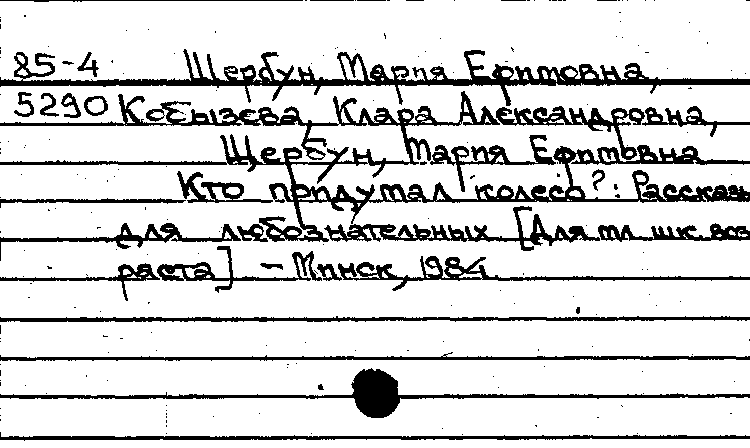 85-4 Щербун, Мария Ефимовна,
5290 Кобызева, Клара Александровна,
Щербун, Мария Ефимовна
Кто придумал колесо?: Рассказы
для любознательных [Для мл шк. воз
раста] – Минск, 1984